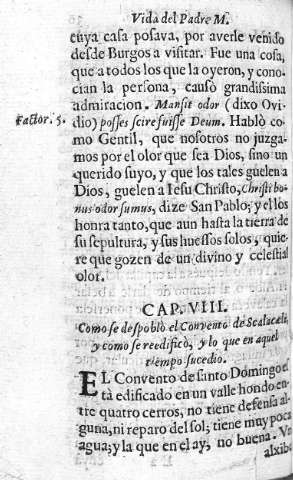 Vida del Padre M.
cuya casa posava, por averle venido
desde Burgos a visitar. Fue una cosa,
que a todos los que la oyeron, y cono-
cian la persona, causò grandissima
admiracion. Mansit odor (dixo Ovi-
Factor. 5. dio) posses scire fuisse Deum. Hablò co-
mo Gentil, que nosotros no juzga-
mos por el olor que sea Dios, sino un
querido suyo, y que los tales guelen a
Dios, guelen a Iesu Christo, Christi bo-
nus odor sumus, dize San Pablo; y ellos
honra tanto, que aun hasta la tierra de
su sepultura, y sus huessos solos, quie-
re que gozen de un divino y celestial
olor.
CAP. VIII.
Como se despoblò el Convento de Scalaceli,
y como se reedificò, y lo que en aquel
tiempo sucedio.
EL Convento de santo Domingo es-
tà edificado en un valle hondo en-
tre quatro cerros, no tiene defensa al-
guna, ni reparo del sol; tiene muy poca
agua; y la que en el ay, no buena. Un
alxibe